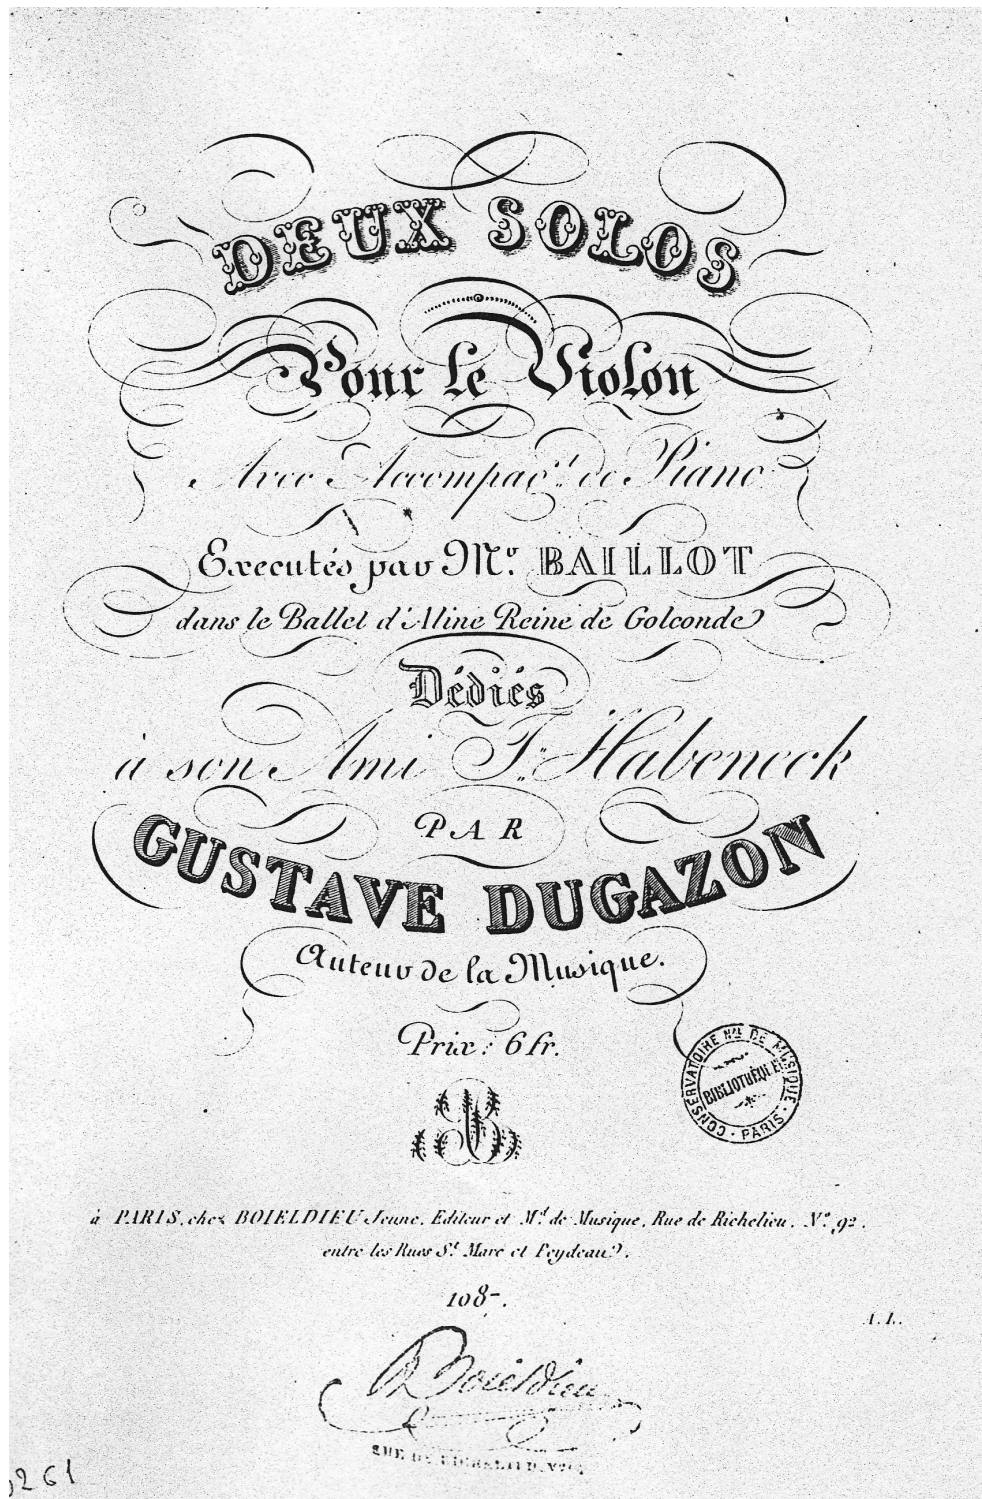 DEUX SOLOS
Pour le Violon
Avec Accompag.t de Piano
Executés par Mr. BAILLOT
dans le Ballet d'Aline Reine de Golconde
Dédiés
à son Ami F. Habeneck
PAR
GUSTAVE DUGAZON
Auteur de la Musique.
Prix: 6 fr.
CONSERVATOIRE NAL DE MUSIQUE
BIBLIOTHÈQUE
PARIS
à PARIS, chez BOIELDIEU Jeune, Editeur et Md. de Musique, Rue de Richelieu, No. 92.
entre les Rues St. Marc et Feydeau.
108.
A.L.
Boieldieu
RUE DE RICHELIEU, No.
261